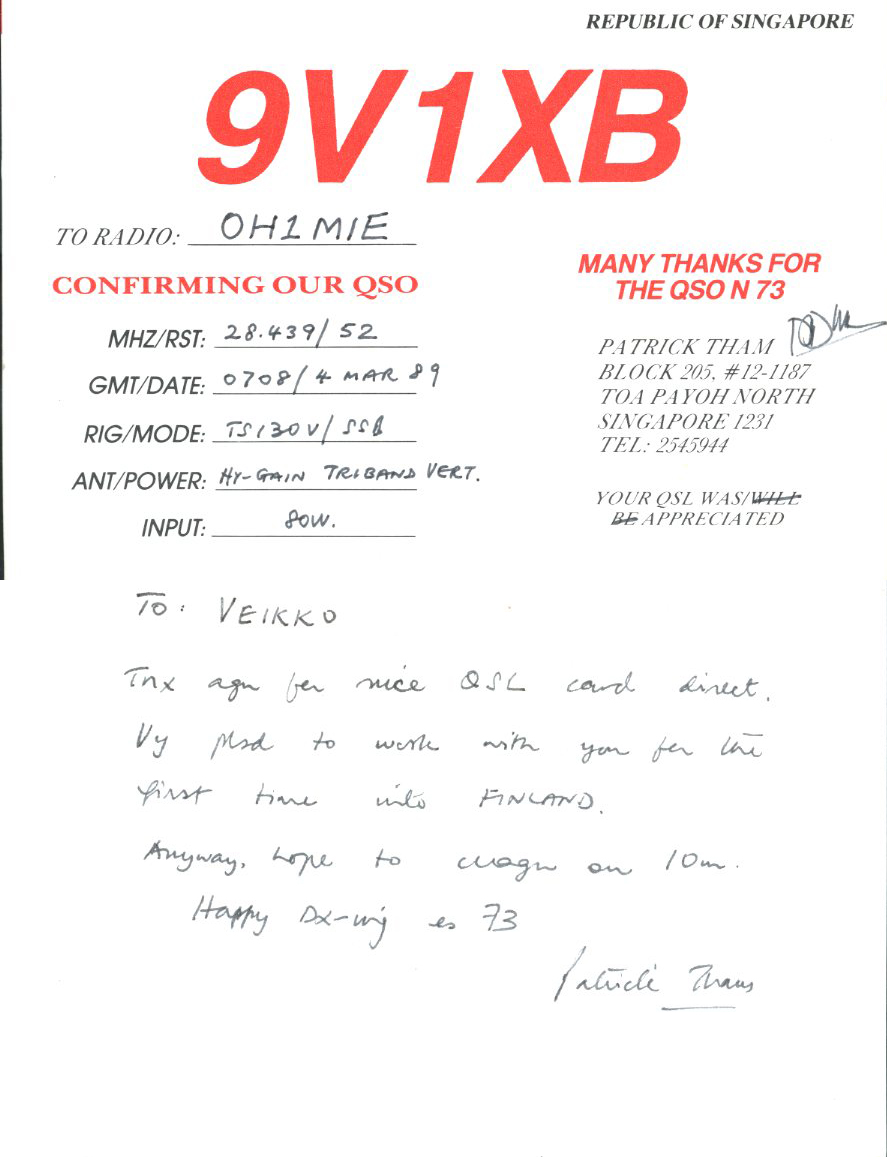 REPUBLIC OF SINGAPORE
9V1XB
TO RADIO: OH1MIE
CONFIRMING OUR QSO
MHZ/RST: 28.439/ 52
GMT/DATE: 0708/ 4 MAR 89
RIG/MODE: TS130V/ SSB
ANT/POWER: HY-GAIN TRIBAND VERT.
INPUT: 80W.
MANY THANKS FOR
THE QSO N 73
PATRICK THAM
BLOCK 205, #12-1187
TOA PAYOH NORTH
SINGAPORE 1231
TEL: 2545944
YOUR QSL WAS/WILL
BE APPRECIATED
TO: VEIKKO
Tnx agn fer nice QSL card direct.
Vy plsd to work with you fer the
first time into FINLAND.
Anyway, hope to cuagn on 10m.
Happy Dx-ing es 73
Patrick Tham